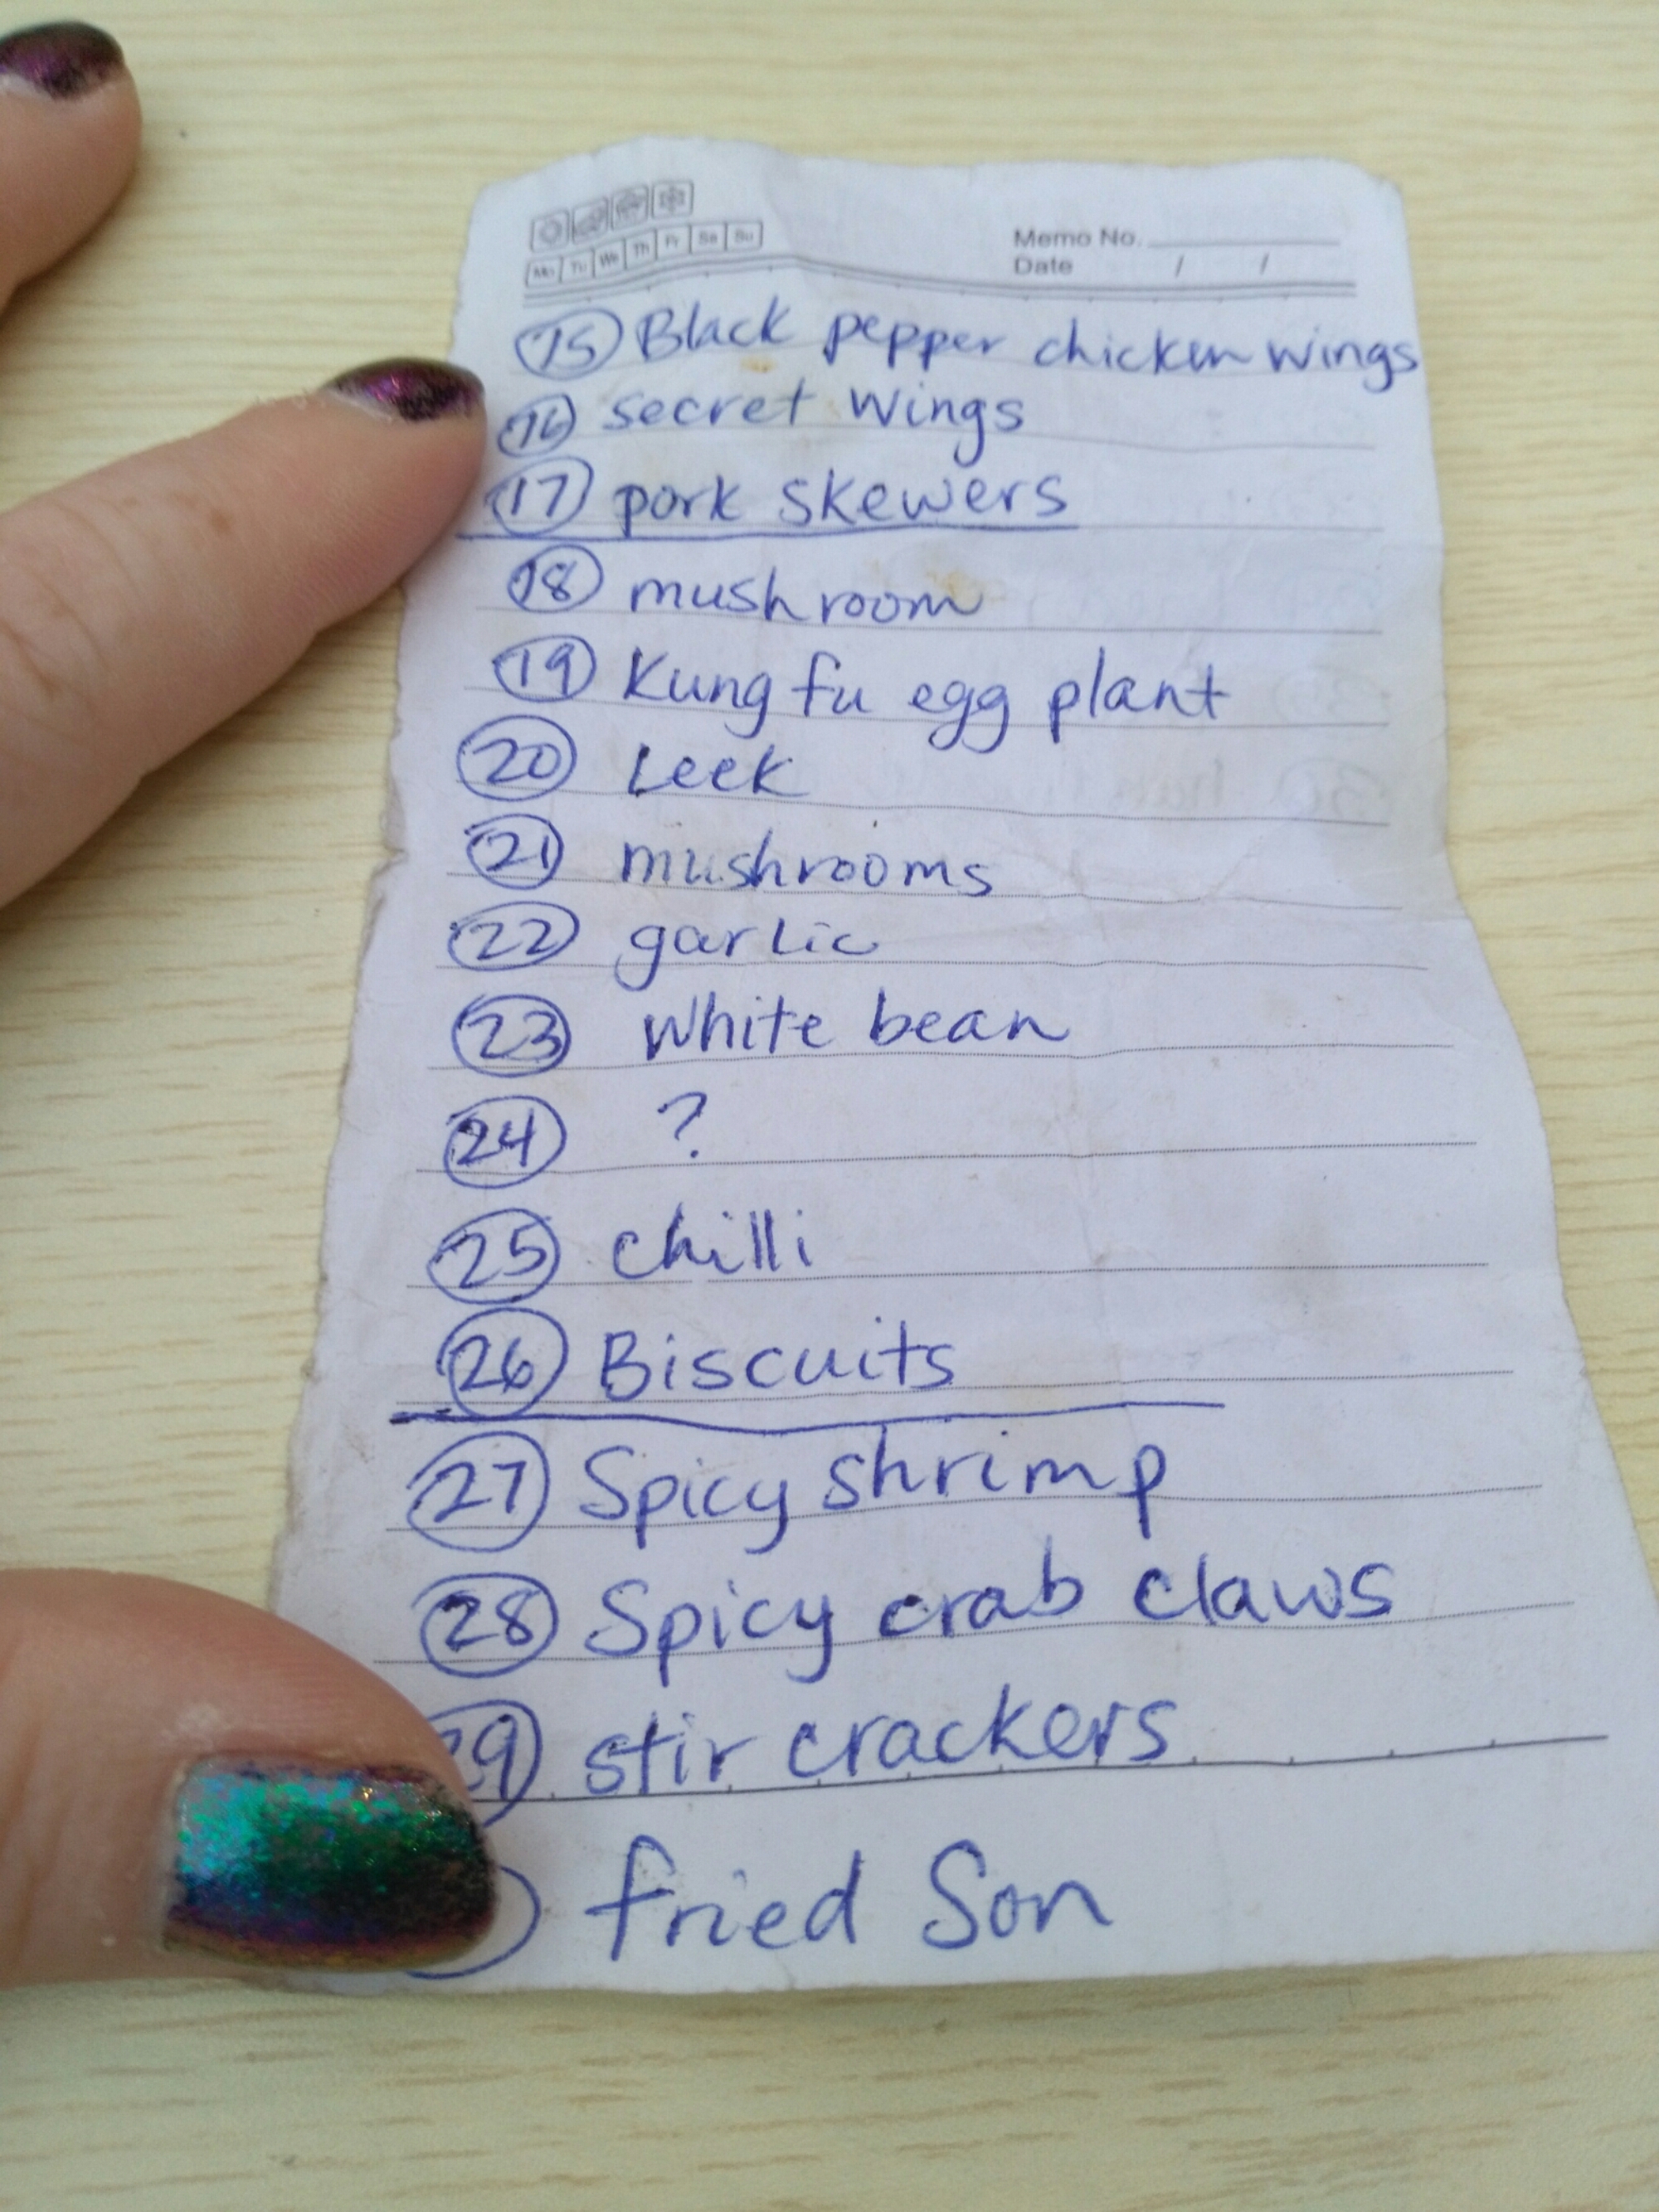 Mo Tu We Th Fr Sa Su
Memo No.
Date / /
15 Black pepper chicken wings
16 secret wings
17 pork skewers
18 mushroom
19 Kung fu egg plant
20 Leek
21 mushrooms
22 garlic
23 white bean
24 ?
25 chilli
26 Biscuits
27 Spicy shrimp
28 Spicy crab claws
29 stir crackers
fried Son